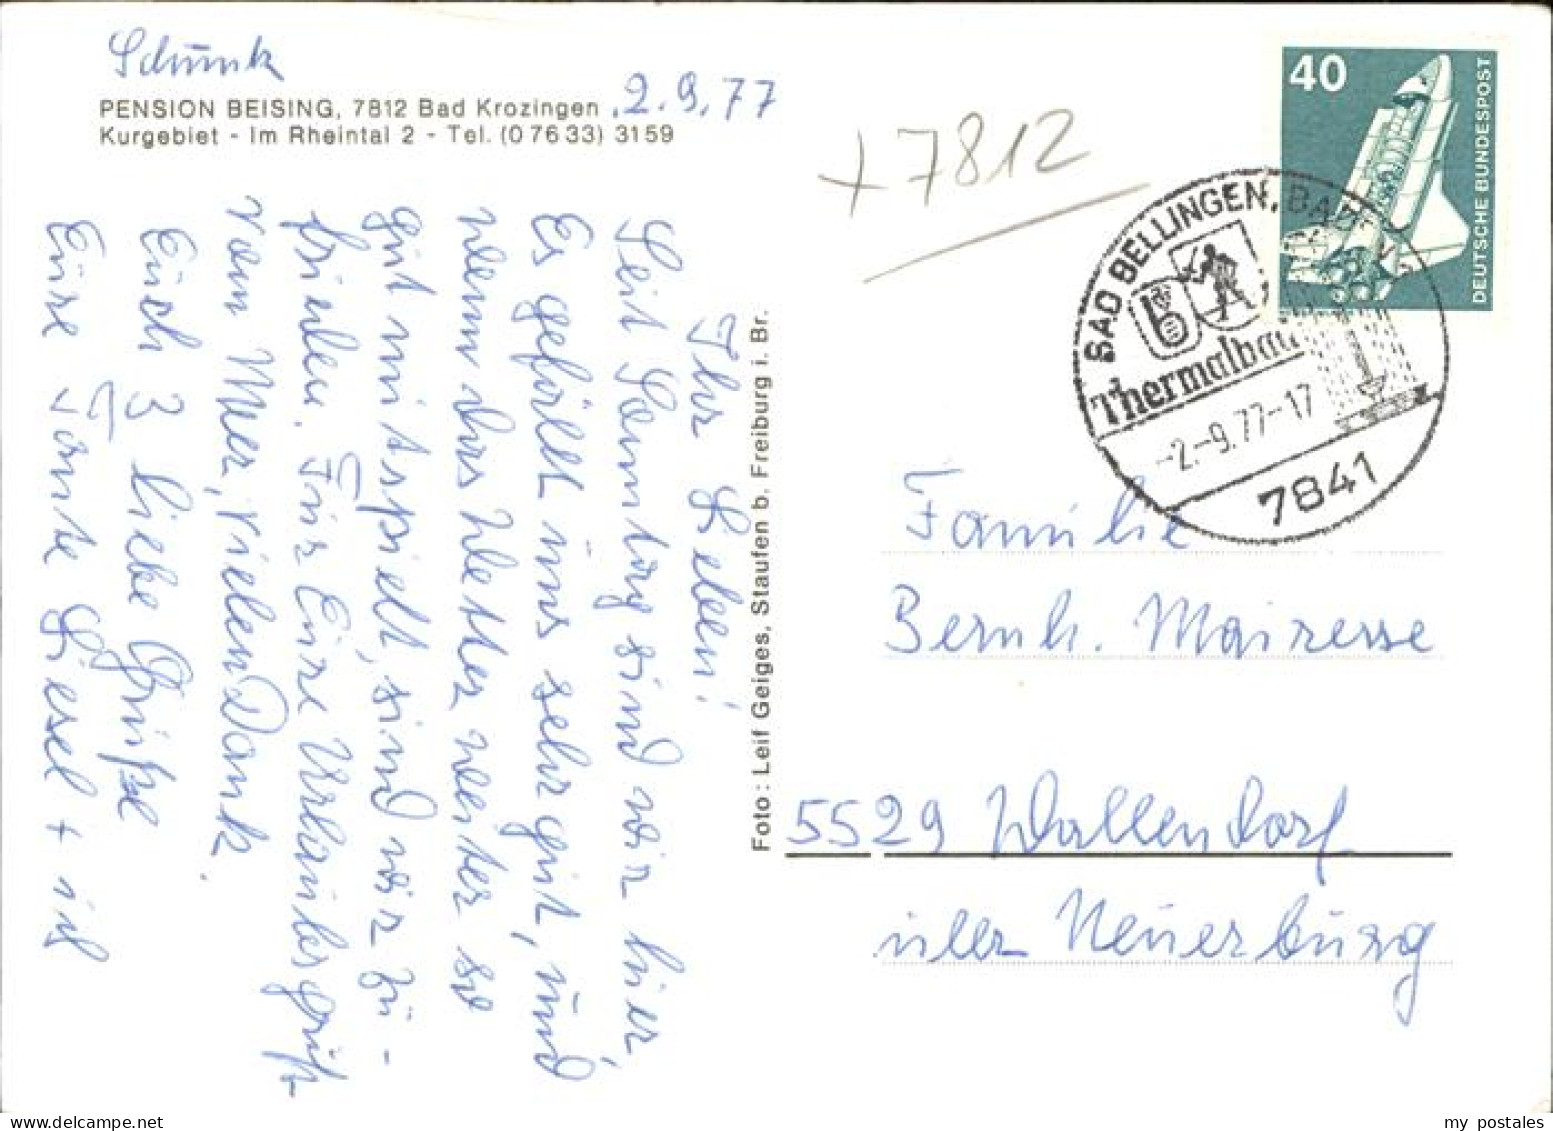 Schunk
PENSION BEISING, 7812 Bad Krozingen
Kurgebiet - Im Rheintal 2 - Tel. (0 76 33) 3159
2.9.77
Ihr Lieben!
Seit Samstag sind wir hier,
Es gefällt uns sehr gut, und
wenn das Wetter weiter so
gut mitspielt, sind wir zu-
frieden. Für Eure Urlaubsgrüße
vom Meer, vielen Dank.
Euch 3 liebe Grüße
Eure Tante Liesel + ich
Foto: Leif Geiges, Staufen b. Freiburg i. Br.
+7812
40
DEUTSCHE BUNDESPOST
BAD BELLINGEN, BADEN
b
Thermalbad
-2.-9.77-17
7841
Familie
Bernh. Mairesse
5529 Wallendorf
über Neuerburg
my postales